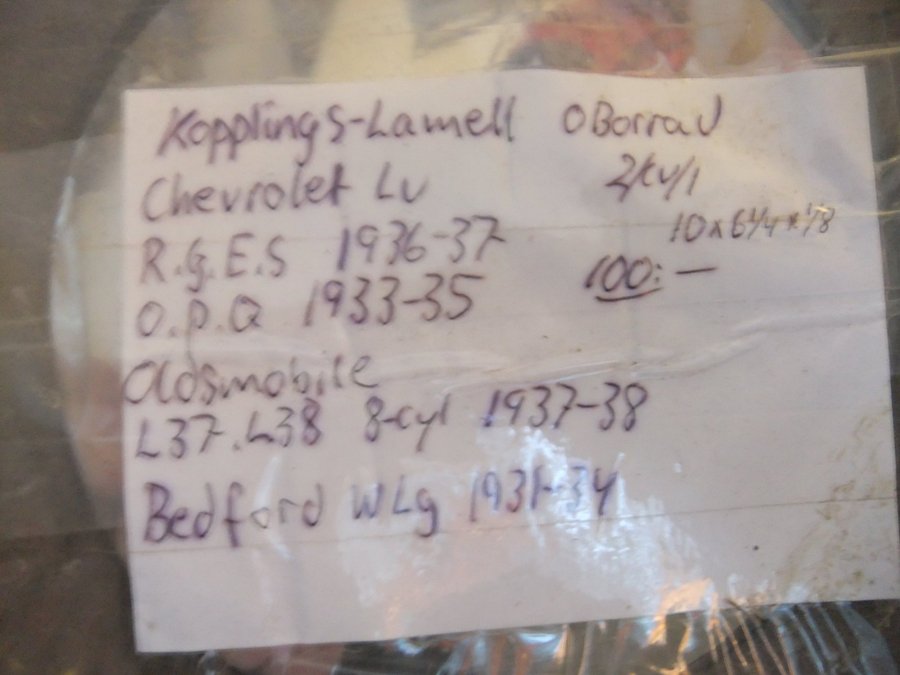 Kopplings-Lamell OBorrad
Chevrolet Lv 2/kv/1
10x6¼x⅛
R.g.E.S 1936-37
100:-
O.P.Q 1933-35
Oldsmobile
L37.L38 8-cyl 1937-38
Bedford WLg 1931-34